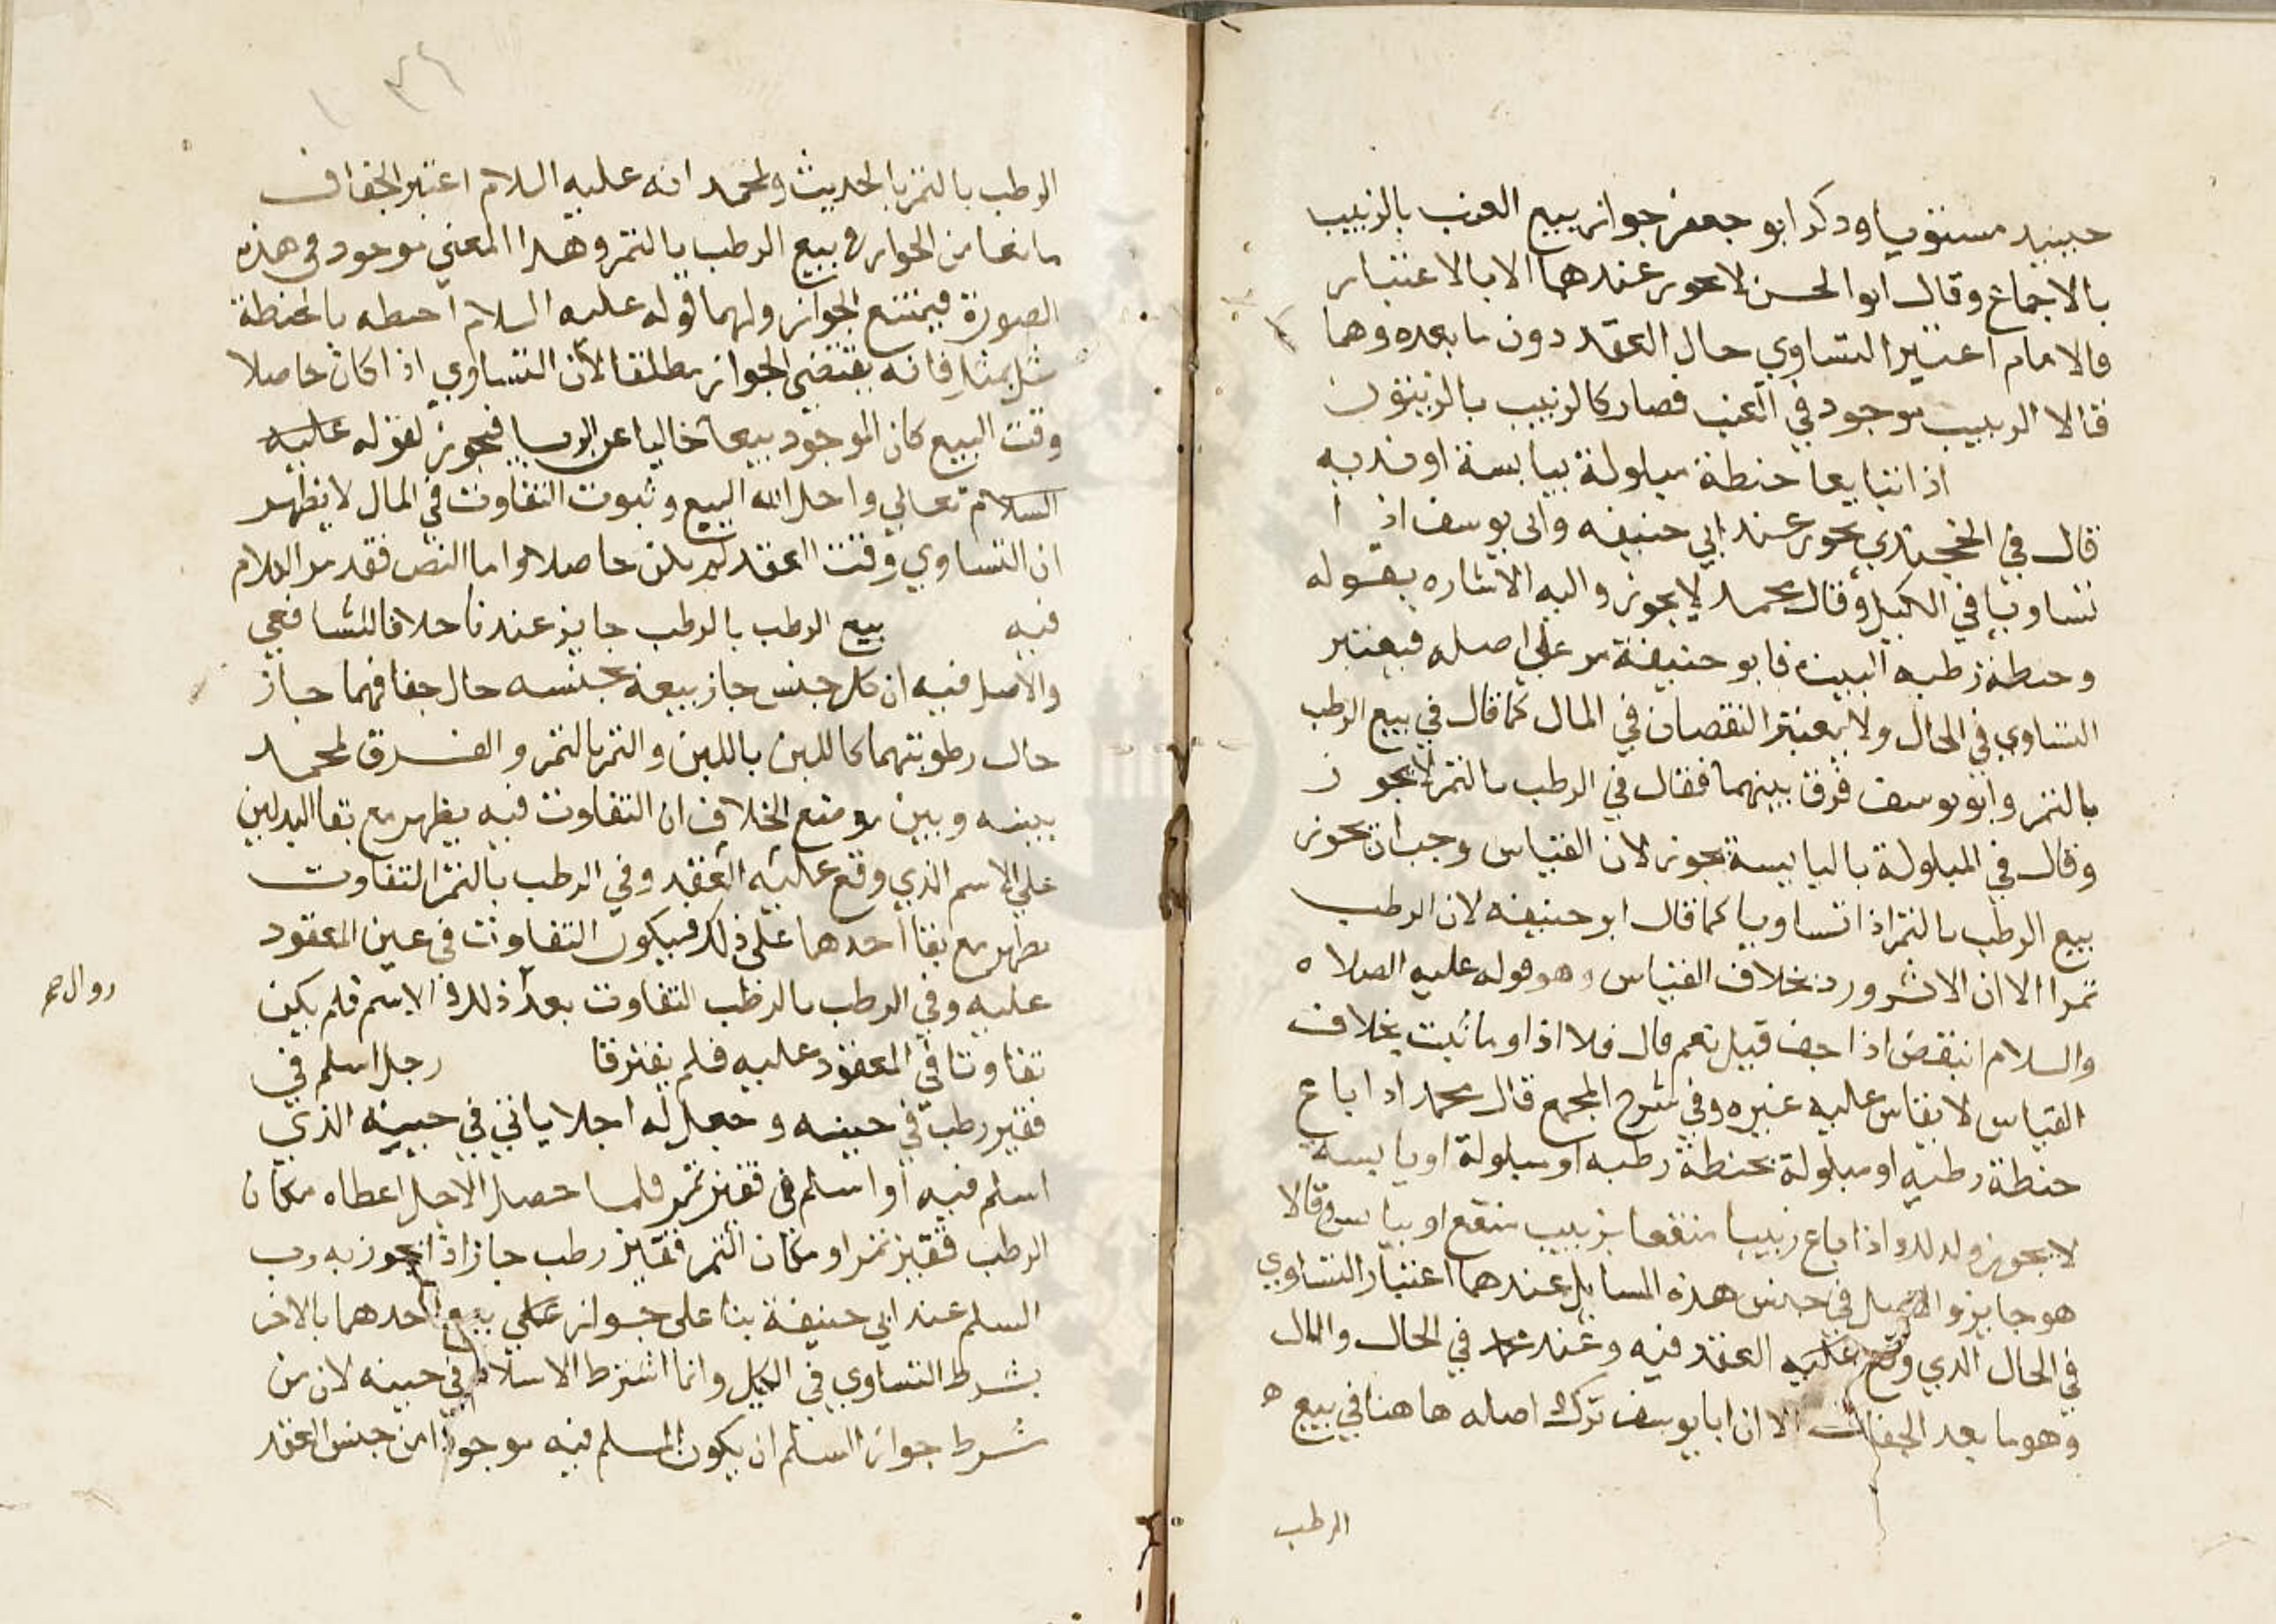 حينيد مستويا وذكر ابو جعفر جواز بيع العنب بالزبيب
بالاجماع وقال ابو الحسن لا يجوز عندهما الا بالاعتبار
فالامام اعتبر التساوي حال العقد دون ما بعده وهما
قالا الزبيب موجود في العنب فصار كالزبيب بالزيتون
اذا تبايعا حنطة مبلولة بيابسة او نديه
قال في الخجندي يجوز عند ابي حنيفه وابي يوسف اذ ا
تساويا في الكيل وقال محمد لا يجوز واليه الاشاره بقوله
وحنطة رطبه البيت فابو حنيفة مر علي اصله فيعتبر
التساوي في الحال ولا يعتبر النقصان في المال كما قال في بيع الرطب
بالتمر وابو يوسف فرق بينهما فقال في الرطب بالتمر لا يجو ز
وقال في المبلولة باليابسة يجوز لان القياس وجب ان يجوز
بيع الرطب بالتمر اذا تساويا كما قال ابو حنيفه لان الرطب
تمرا الا ان الاثر ورد بخلاف القياس وهو قوله عليه الصلاه
والسلام انيقص اذا جف قيل نعم قال فلا اذا وما ثبت بخلاف
القياس لا يقاس عليه غيره وفي شرح المجمع قال محمد اذا باع
حنطة رطبه او مبلولة بحنطة رطبه او مبلولة او يابسة
لا يجوز وكذلك واذا باع زبيبا منقعا بزبيب منقع او يابس وقالا
هو جايز والاصل في جنس هذه المسايل عندهما اعتبار التساوي
في الحال الذي وقع عليه العقد فيه وعند محمد في الحال والمال
وهو ما بعد الجفاف الا ان ابا يوسف ترك اصله هاهنا في بيع
الرطب
الرطب بالتمر بالحديث ولمحمد انه عليه السلام اعتبر الجفاف
مانعا من الجواز في بيع الرطب بالتمر وهذا المعني موجود في هذه
الصورة فيمتنع الجواز ولهما قوله عليه السلام الحنطه بالحنطة
مثل بمثل فانه يقتضي الجواز مطلقا لان التساوي اذا كان حاصلا
وقت البيع كان الموجود بيعا خاليا عن الربا فيجوز لقوله عليه
السلام تعالي واحل الله البيع وثبوت التفاوت في المال لا يظهر
ان التساوي وقت العقد لم يكن حاصلا واما النص فقد مر الكلام
فيه بيع الرطب بالرطب جايز عندنا خلافا للشافعي
والاصل فيه ان كل جنس جاز بيعه بجنسه حال جفافهما جاز
حال رطوبتهما كاللبن باللبن والتمر بالتمر والفرق لمحمد
بينه وبين موضع الخلاف ان التفاوت فيه يظهر مع بقا البدلين
علي الاسم الذي وقع عليه العقد وفي الرطب بالتمر التفاوت
يظهر مع بقا احدهما علي ذلك فيكون التفاوت في عين المعقود
عليه وفي الرطب بالرطب التفاوت بعد ذلك الاسم فلم يكن
تفاوتا في المعقود عليه فلم يفترقا رجل اسلم في
قفيز رطب في حينه وجعل له اجلا ياتي في حينه الذي
اسلم فيه او اسلم في قفيز تمر فلما حصل الاجل اعطاه مكان
الرطب قفيز تمر او مكان التمر قفيز رطب جاز اذا تجوز به رب
السلم عند ابي حنيفة بنا علي جواز بيع احدهما بالاخر
بشرط التساوي في الكيل وانما اشترط الاسلام في حينه لان من
شرط جواز السلم ان يكون المسلم فيه موجودا من حين العقد